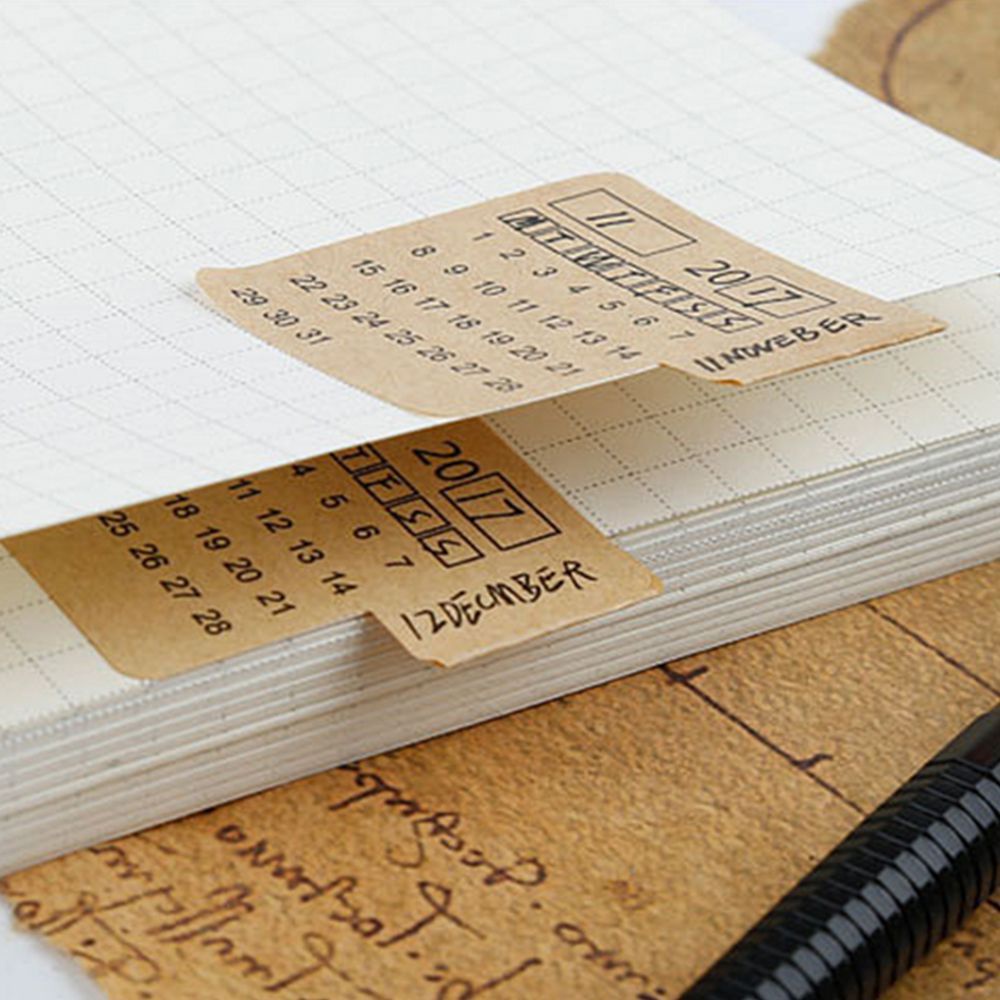 11
2017
M T W T F S S
1 2 3 4 5 6 7
8 9 10 11 12 13 14
15 16 17 18 19 20 21
22 23 24 25 26 27 28
29 30 31
11 NOVEBER
2017
T F S S
4 5 6 7
11 12 13 14
18 19 20 21
25 26 27 28
12 DECMBER